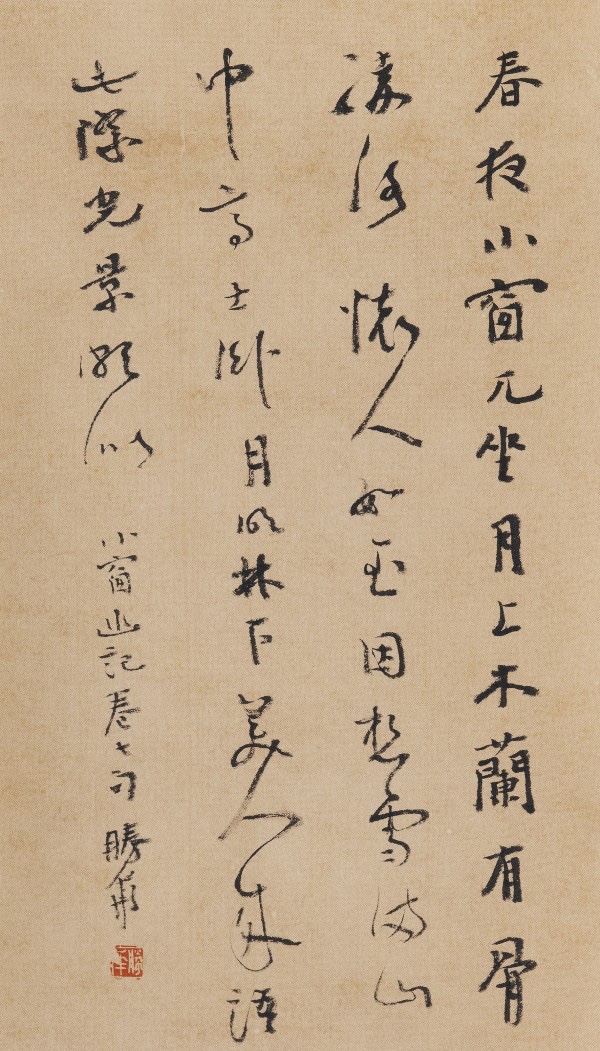 春夜小窗兀坐月上木蘭有骨
凌冰懷人如玉因想雪滿山
中高士臥月明林下美人來語
此際光景頗似
小窗幽記卷七句 勝